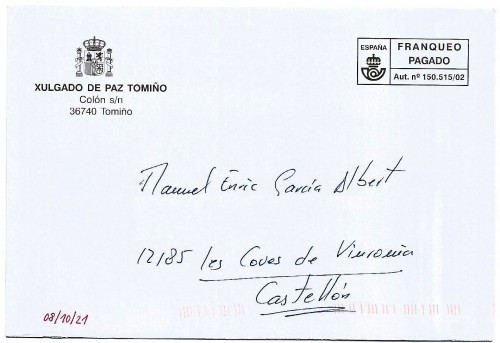 XULGADO DE PAZ TOMIÑO
Colón s/n
36740 Tomiño
ESPAÑA
FRANQUEO
PAGADO
Aut. nº 150.515/02
Manuel Enric García Albert
12185 les Coves de Vinromà
Castellón
08/10/21